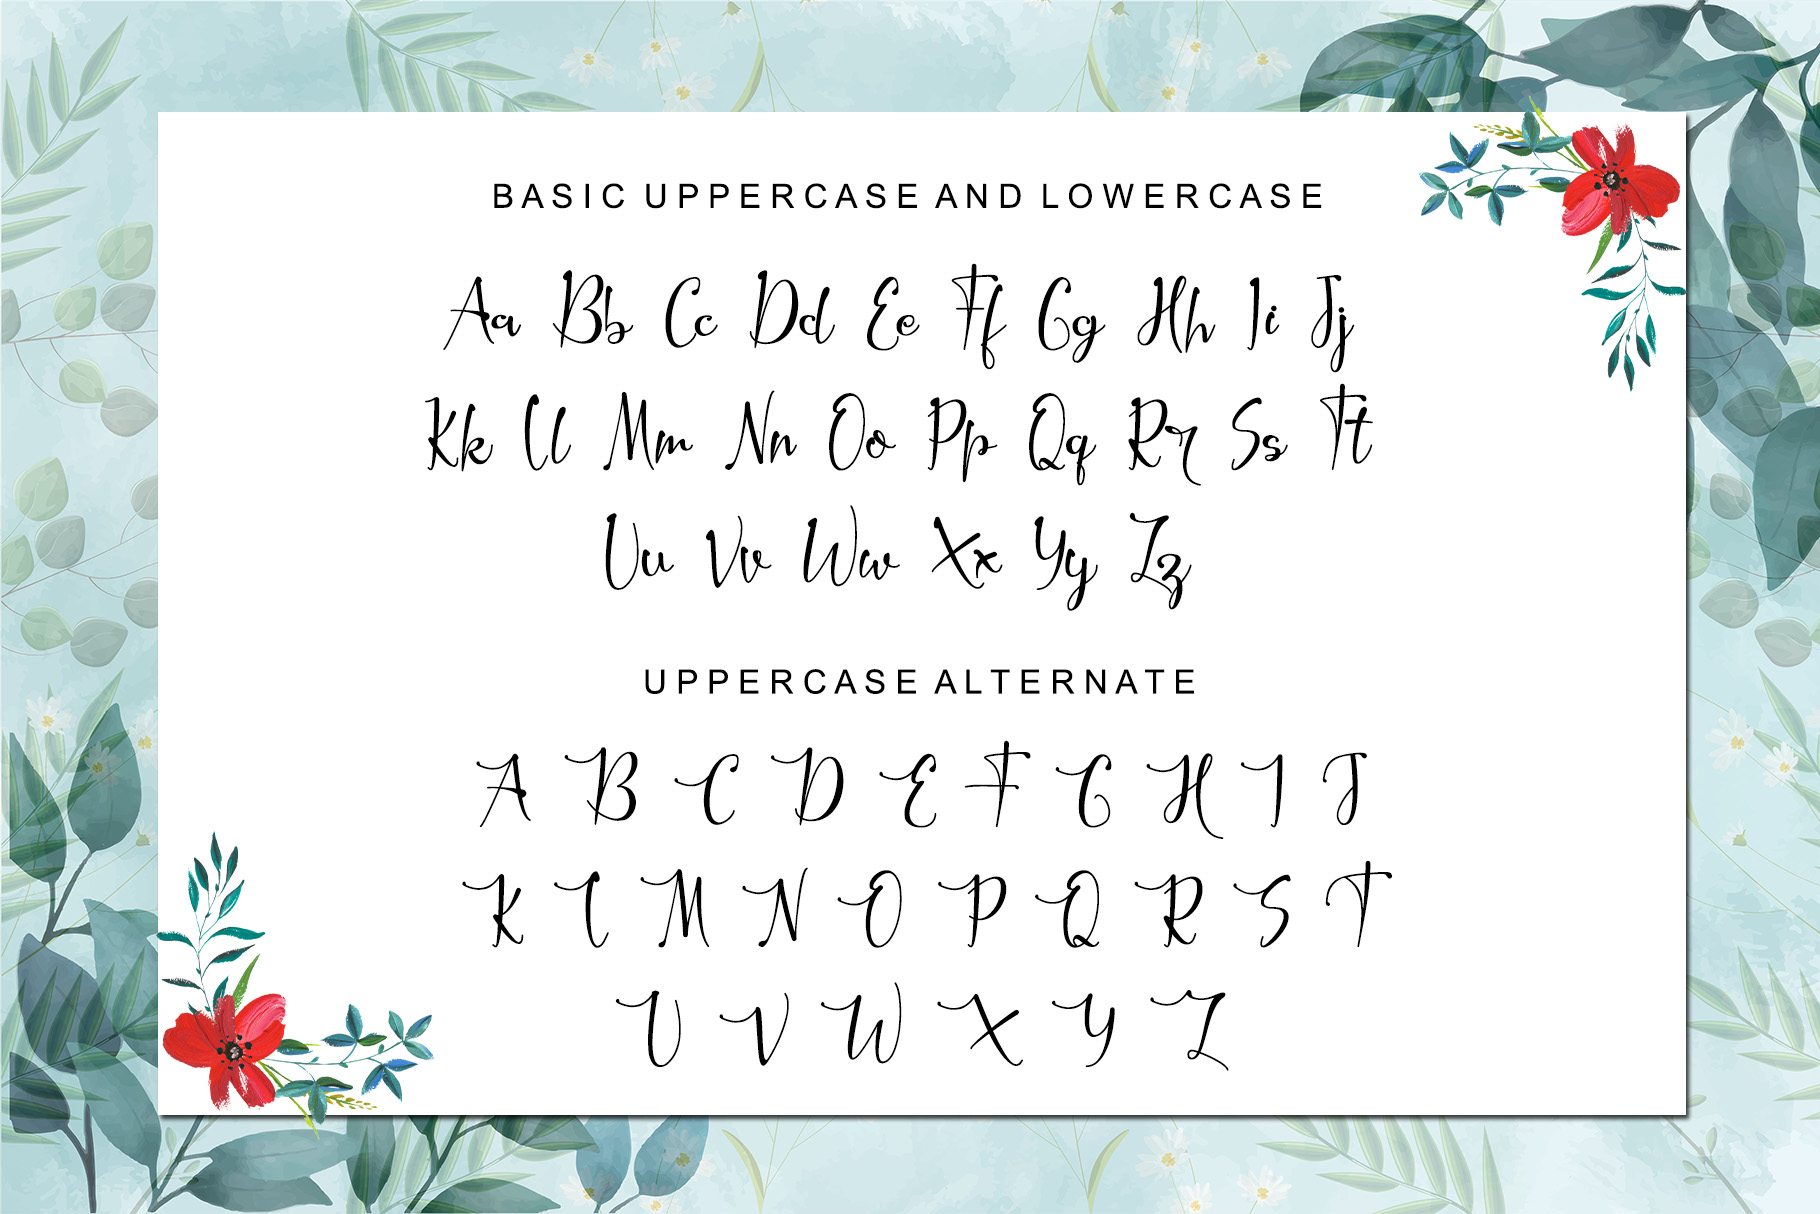 BASIC UPPERCASE AND LOWERCASE
Aa Bb Cc Dd Ee Ff Gg Hh Ii Jj
Kk Ll Mm Nn Oo Pp Qq Rr Ss Tt
Uu Vv Ww Xx Yy Zz
UPPERCASE ALTERNATE
A B C D E F G H I J
K L M N O P Q R S T
U V W X Y Z